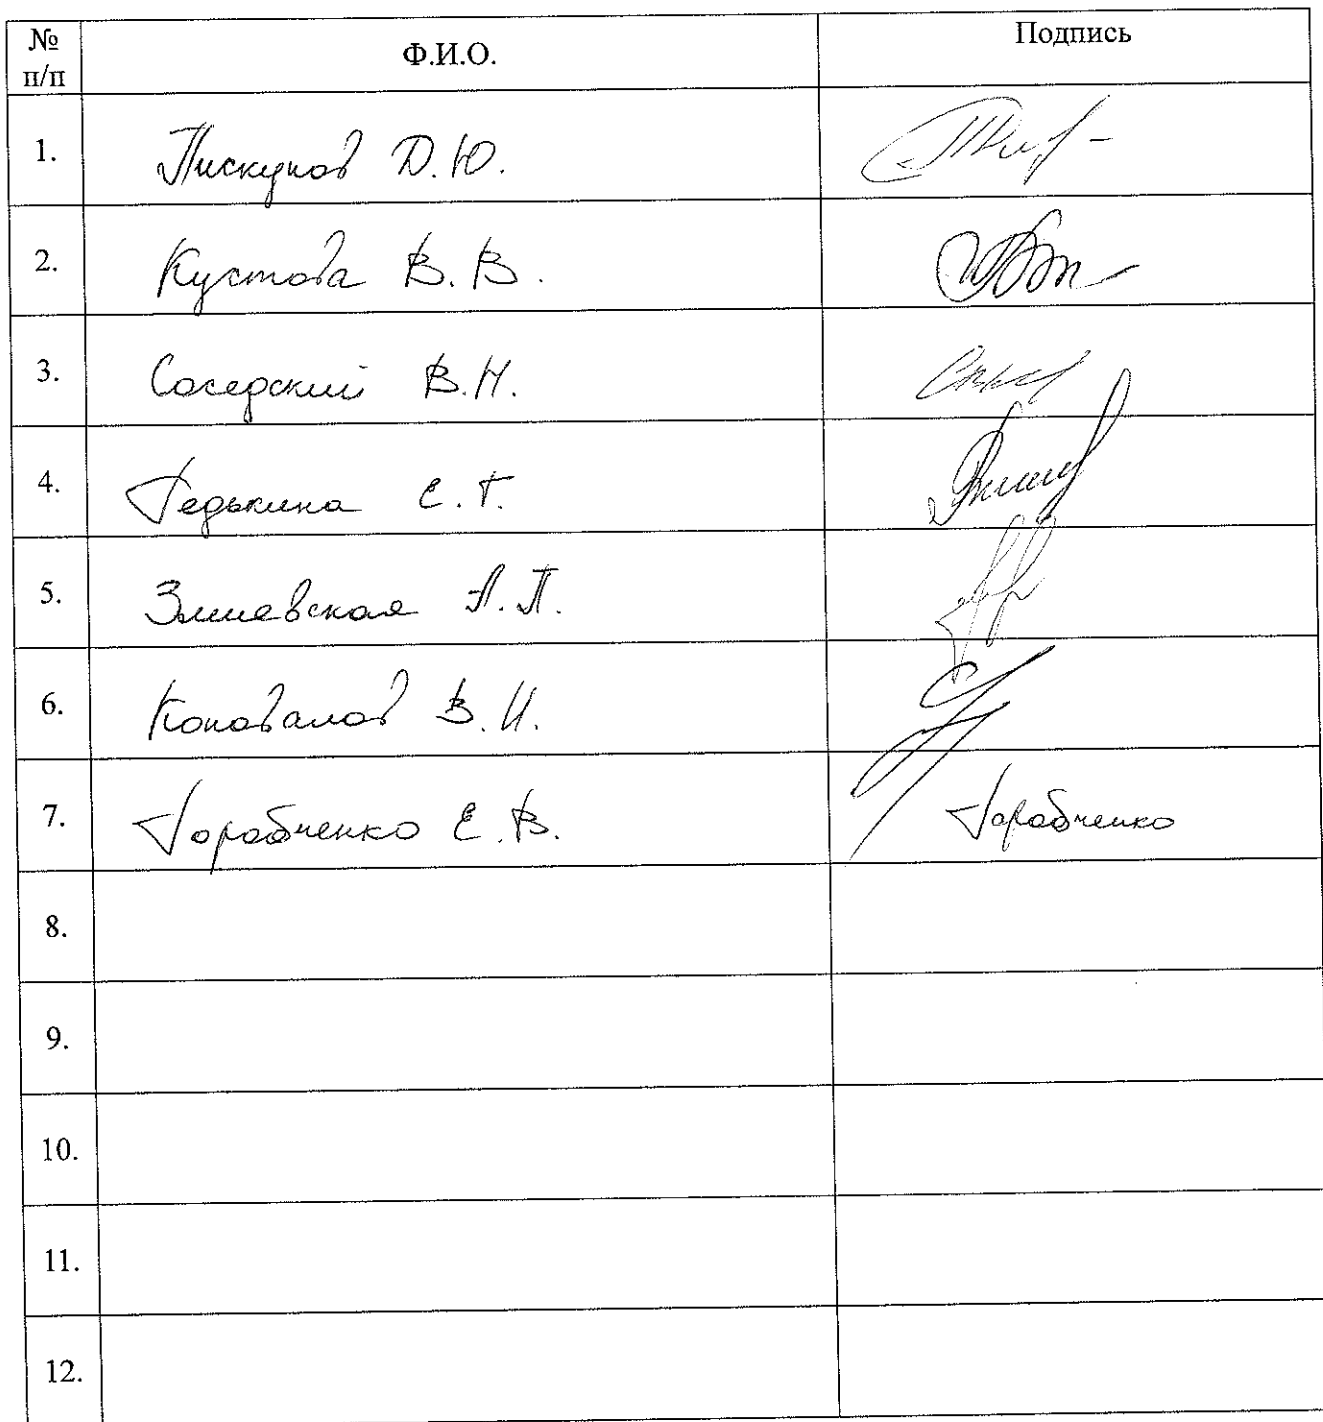 № п/п Ф.И.О. Подпись
1. Пискунов Д.Ю.
2. Кустова В.В.
3. Соседский В.Н.
4. Редькина Е.Г.
5. Змиевская А.П.
6. Коновалов В.И.
7. Горобченко Е.В. Горобченко
8.
9.
10.
11.
12.